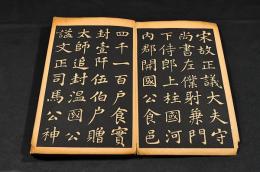 宋故正議大夫守
尚書左僕射兼門
下侍郎上柱國河
內郡開國公食邑
四千一百戶食實
封壹阡伍伯戶贈
太師追封溫國公
謚文正司馬公神